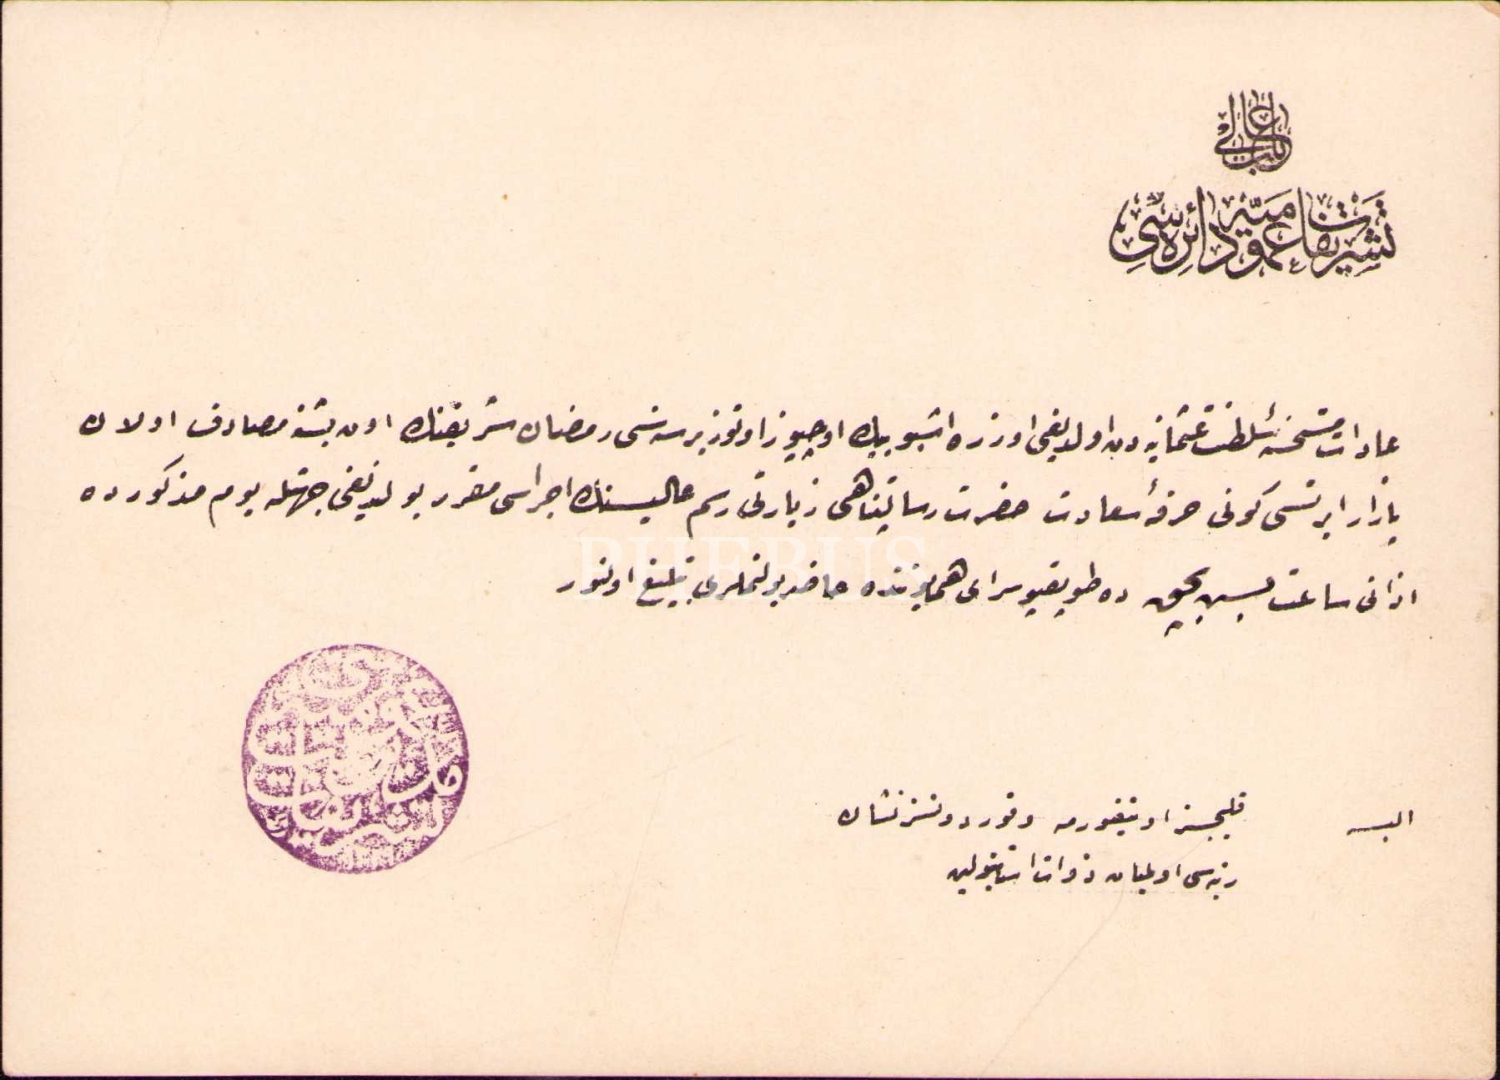 باب عالی
تشریفات عمومیه دائره سی
عادات مستحسنهٔ سلطنت عثمانیه دن اولدیغی اوزره اشبو بیك اوچیوز اوتوز بر سنه سی رمضان شریفنك اون بشنه مصادف اولان
پازار ایرتسی كونی خرقهٔ سعادت حضرت رسالتپناهی زیارتی رسم عالیسنك اجراسی مقرر بولندیغی جهتله یوم مذكورده
اذانی ساعت بش بچق ده طوپقپو سرای همایوننده حاضر بولنملری تبلیغ اولنور
البسه
قلیجسز اونیفورمه وقوردونسز نشان
رتبه سی اولمیان ذوات استانبولین
PHEBUS